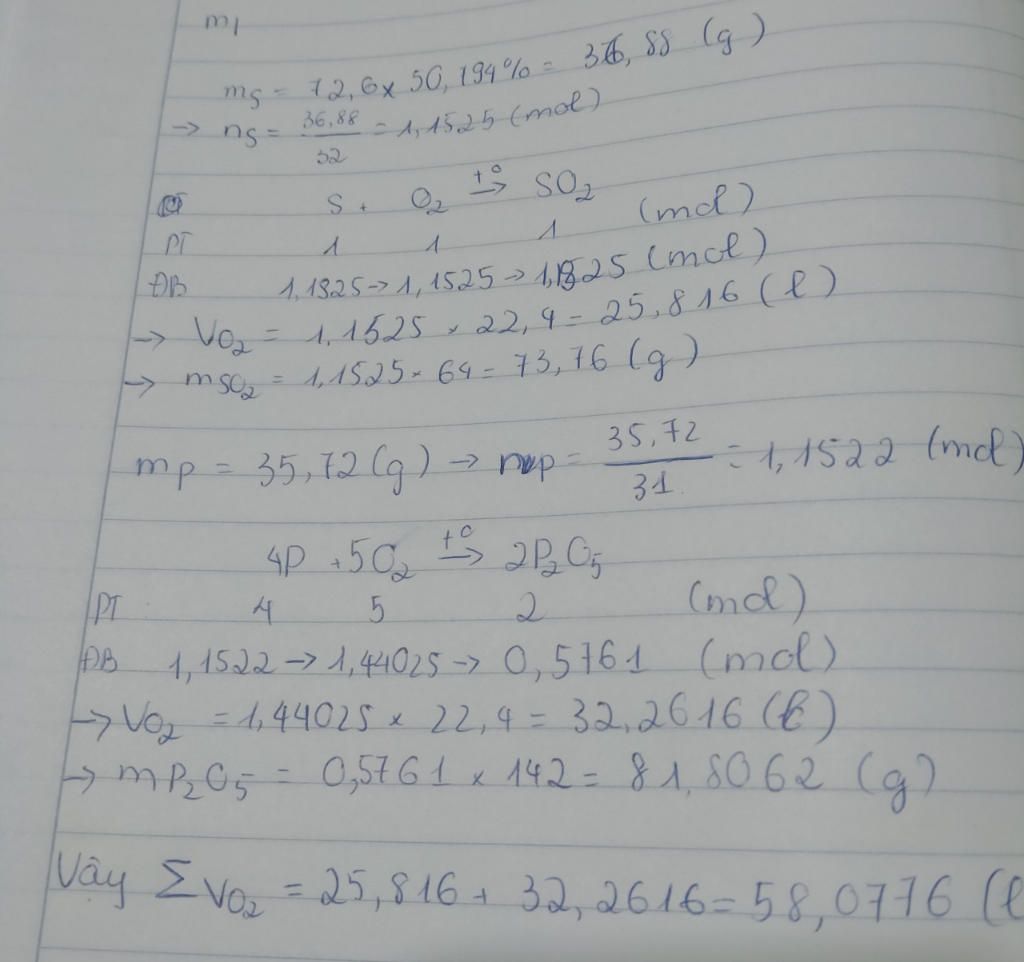 m1
mS = 72,6 × 50,794% = 36,88 (g)
→ nS = 36,88 / 32 = 1,1525 (mol)
S + O2 t° → SO2
PT 1 1 1 (mol)
ĐB 1,1525 → 1,1525 → 1,1525 (mol)
→ VO2 = 1,1525 × 22,4 = 25,816 (l)
→ mSO2 = 1,1525 × 64 = 73,76 (g)
mP = 35,72 (g) → nP = 35,72 / 31 = 1,1522 (mol)
4P + 5O2 t° → 2P2O5
PT 4 5 2 (mol)
ĐB 1,1522 → 1,44025 → 0,5761 (mol)
→ VO2 = 1,44025 × 22,4 = 32,2616 (l)
→ mP2O5 = 0,5761 × 142 = 81,8062 (g)
Vậy Σ VO2 = 25,816 + 32,2616 = 58,0776 (l